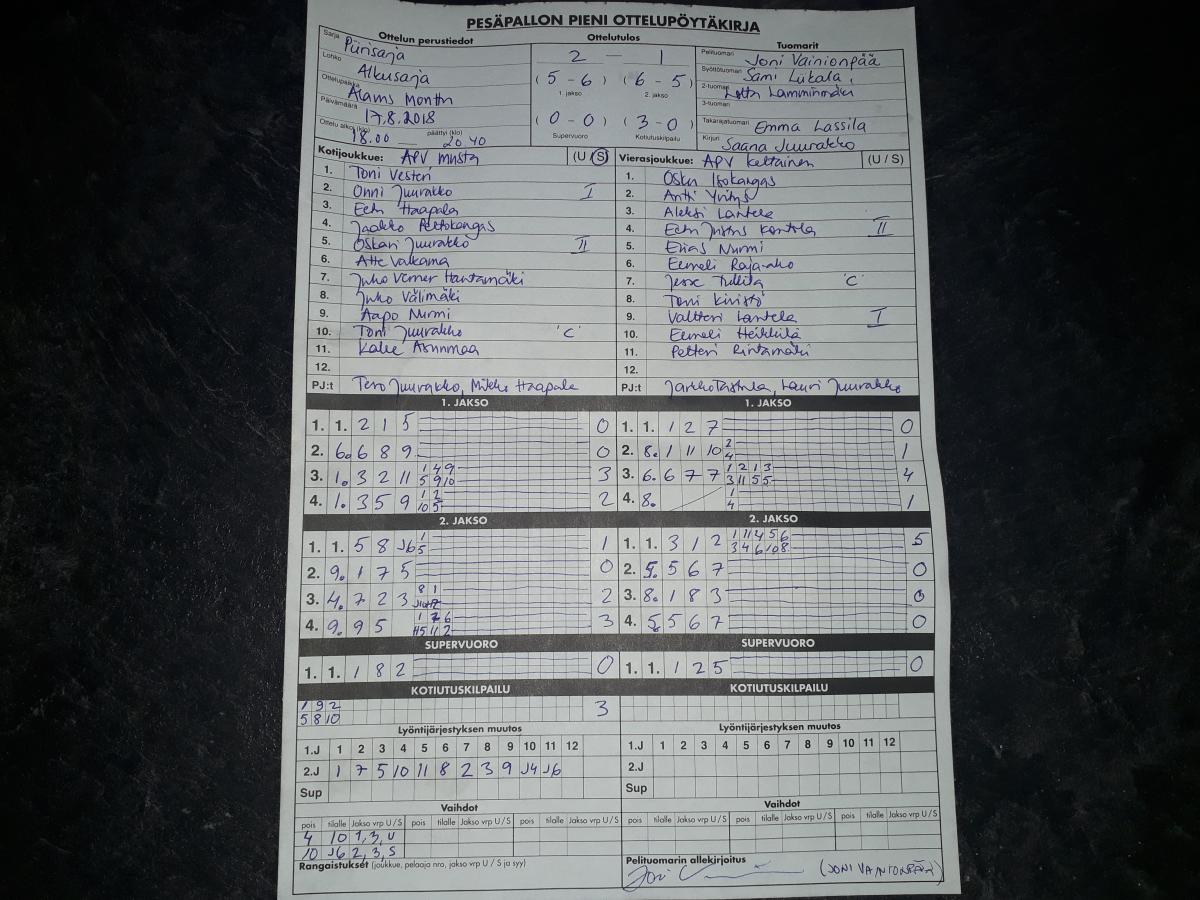 PESÄPALLON PIENI OTTELUPÖYTÄKIRJA
Ottelun perustiedot
Sarja Piirisarja
Lohko Alkusarja
Ottelupaikka Alams Monttu
Päivämäärä 17.8.2018
Ottelu alkoi (klo) 18.00 päättyi (klo) 20.40
Ottelutulos
2 – 1
(5 - 6) (6 - 5)
1. jakso 2. jakso
(0 - 0) (3 - 0)
Supervuoro Kotiutuskilpailu
Tuomarit
Pelituomari Joni Vainionpää
Syöttötuomari Sami Liikala
2-tuomari Lotta Lamminmäki
3-tuomari
Takarajatuomari Emma Lassila
Kirjuri Saana Juurakko
Kotijoukkue: APV musta (U / S)
1. Toni Vesteri
2. Onni Juurakko I
3. Eetu Haapala
4. Jaakko Peltokangas
5. Oskari Juurakko II
6. Atte Valkama
7. Juho Verner Hautamäki
8. Juho Välimäki
9. Aapo Nurmi
10. Toni Juurakko 'C'
11. Kalle Asunmaa
12.
PJ:t Tero Juurakko, Mikko Haapala
Vierasjoukkue: APV keltainen (U / S)
1. Osku Isokangas
2. Antti Yritys
3. Aleksi Lantela
4. Eetu Justus Kontola II
5. Elias Nurmi
6. Eemeli Raja-aho
7. Jesse Tullila 'C'
8. Toni Kivistö
9. Valtteri Lantela I
10. Eemeli Heikkilä
11. Petteri Rintamäki
12.
PJ:t Lauri Juurakko
1. JAKSO
1. 1. 2 1 5 0
2. 6. 6 8 9 0
3. 1. 3 2 11 1 4 9 3
5 9 10
4. 1. 3 5 9 1 2 2
10 5
1. JAKSO
1. 1. 1 2 7 0
2. 8. 1 11 10 2 1
4
3. 6. 6 7 7 1 2 1 3 4
3 11 5 5
4. 8. 1 1
4
2. JAKSO
1. 1. 5 8 J6 1 1
5
2. 9. 1 7 5 0
3. 4. 7 2 3 8 1 2
4. 9. 9 5 3
2. JAKSO
1. 1. 3 1 2 1 11 4 5 6 5
3 4 6 10 8
2. 5. 5 6 7 0
3. 8. 1 8 3 0
4. 5. 5 6 7 0
SUPERVUORO
1. 1. 1 8 2 0
SUPERVUORO
1. 1. 1 2 5 0
KOTIUTUSKILPAILU
1 9 2 3
5 8 10
KOTIUTUSKILPAILU
Lyöntijärjestyksen muutos
1.J 1 2 3 4 5 6 7 8 9 10 11 12
2.J 1 7 5 10 11 8 2 3 9 J4 J6
Sup
Lyöntijärjestyksen muutos
1.J 1 2 3 4 5 6 7 8 9 10 11 12
2.J
Sup
Vaihdot
pois tilalle Jakso vrp U / S pois tilalle Jakso vrp U / S pois tilalle Jakso vrp U / S
4 10 1, 3, U
10 J6 2, 3, S
Vaihdot
pois tilalle Jakso vrp U / S pois tilalle Jakso vrp U / S pois tilalle Jakso vrp U / S
Rangaistukset (joukkue, pelaaja nro, jakso vrp U / S ja syy)
Pelituomarin allekirjoitus
Joni (JONI VAINIONPÄÄ)